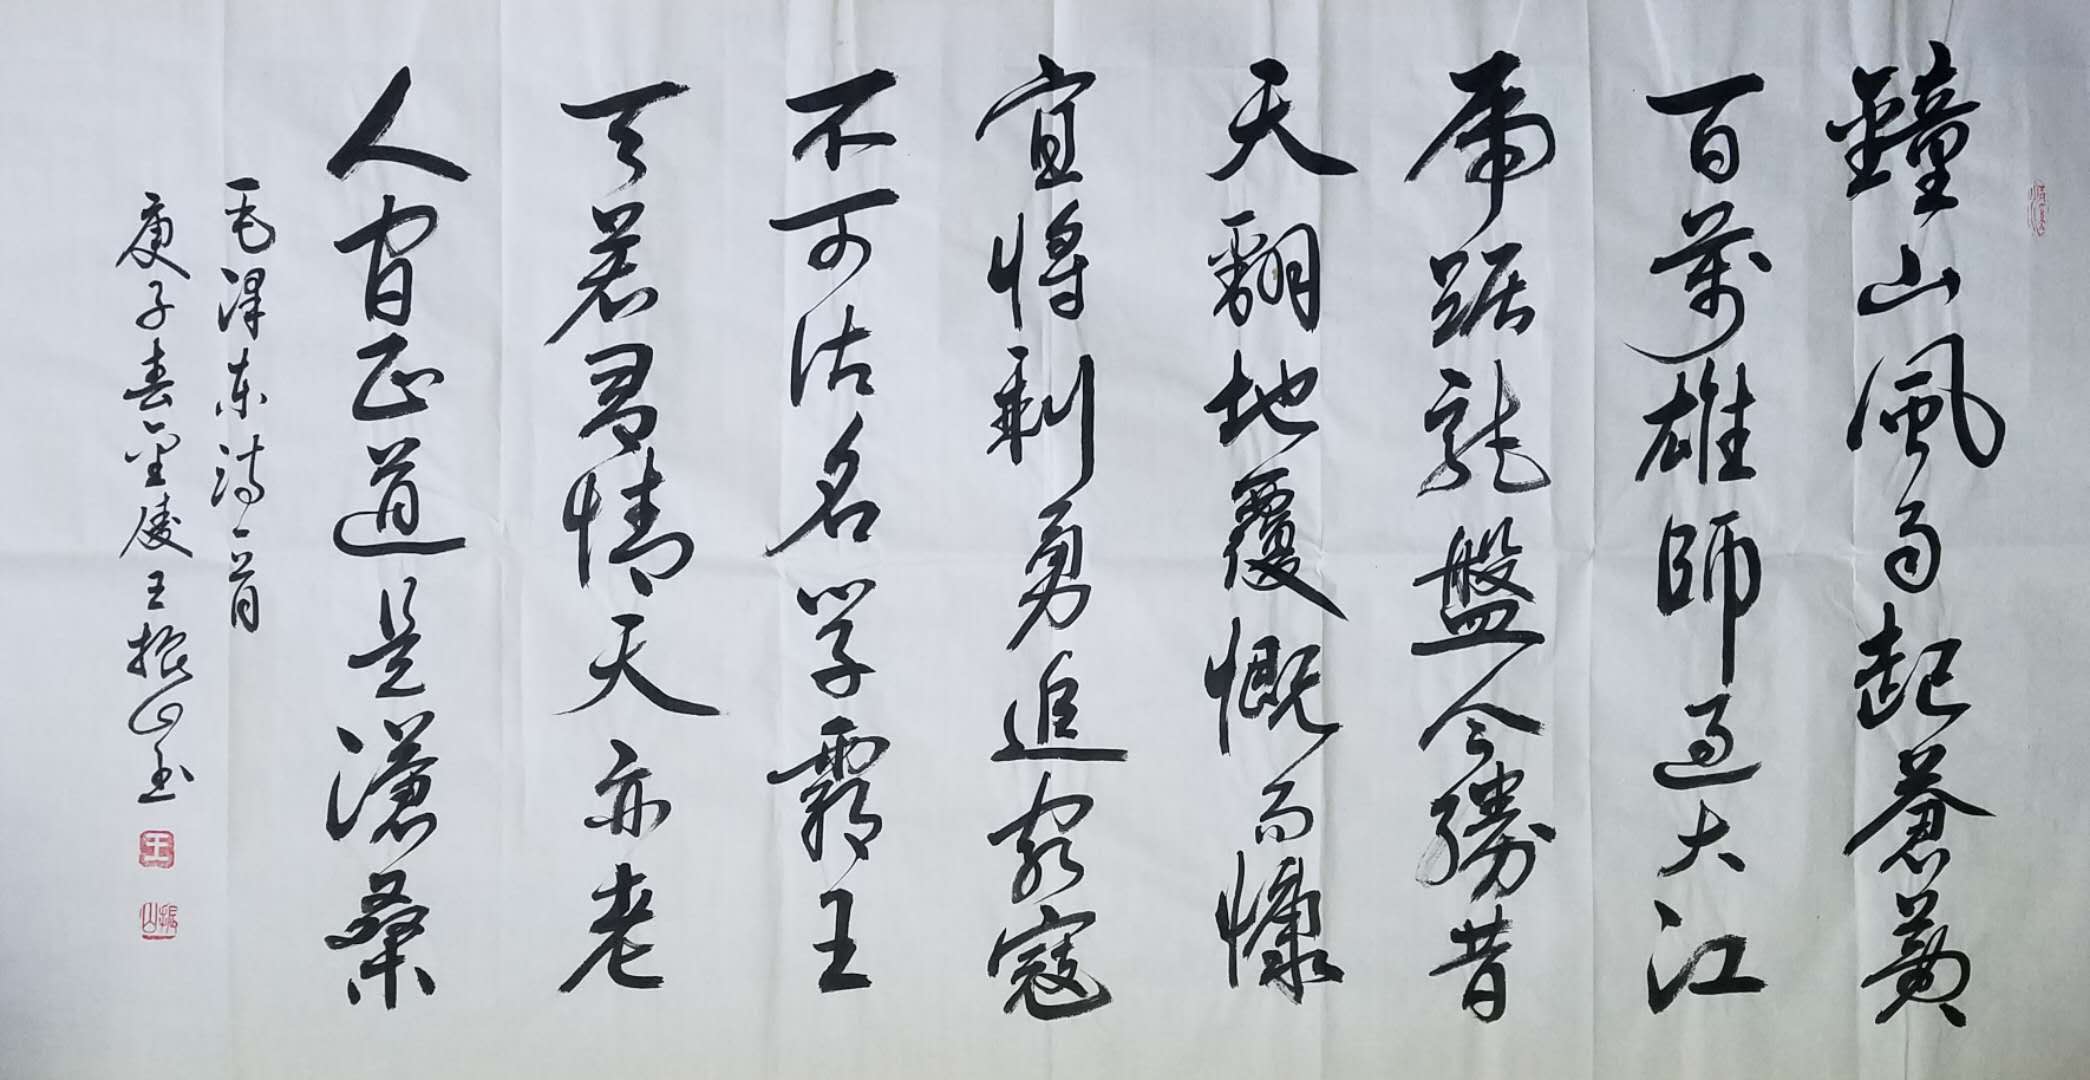 鐘山風雨起蒼黃
百萬雄師過大江
虎踞龍盤今勝昔
天翻地覆慨而慷
宜將剩勇追窮寇
不可沽名学霸王
天若有情天亦老
人間正道是滄桑
毛澤东詩一首
庚子春金陵王振山書
王
振山